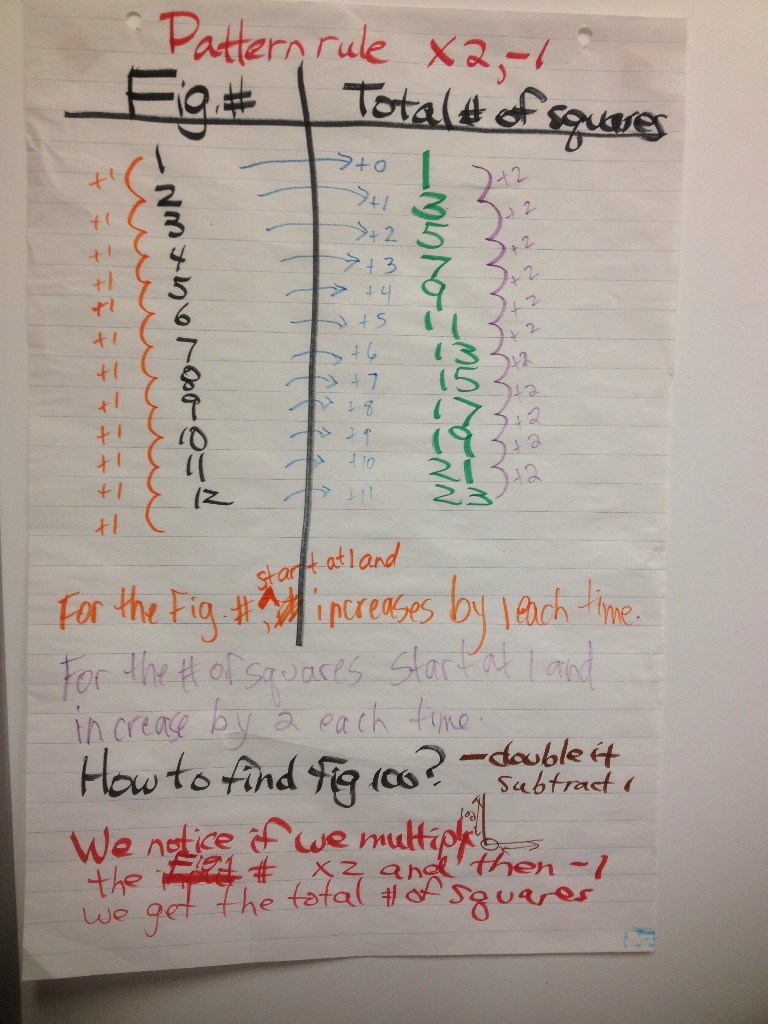 Pattern rule x2,-1
Fig.# Total # of squares
1 +0 1
2 +1 3
3 +2 5
4 +3 7
5 +4 9
6 +5 11
7 +6 13
8 +7 15
9 +8 17
10 +9 19
11 +10 21
12 +11 23
+1 +1 +1 +1 +1 +1 +1 +1 +1 +1 +1 +1
+2 +2 +2 +2 +2 +2 +2 +2 +2 +2 +2
start at 1 and
For the Fig. # ^ increases by 1 each time.
For the # of squares start at 1 and
increase by 2 each time.
How to find fig 100? - double it
subtract 1
We notice if we multiply
the Fig. # x2 and then -1
we get the total # of squares